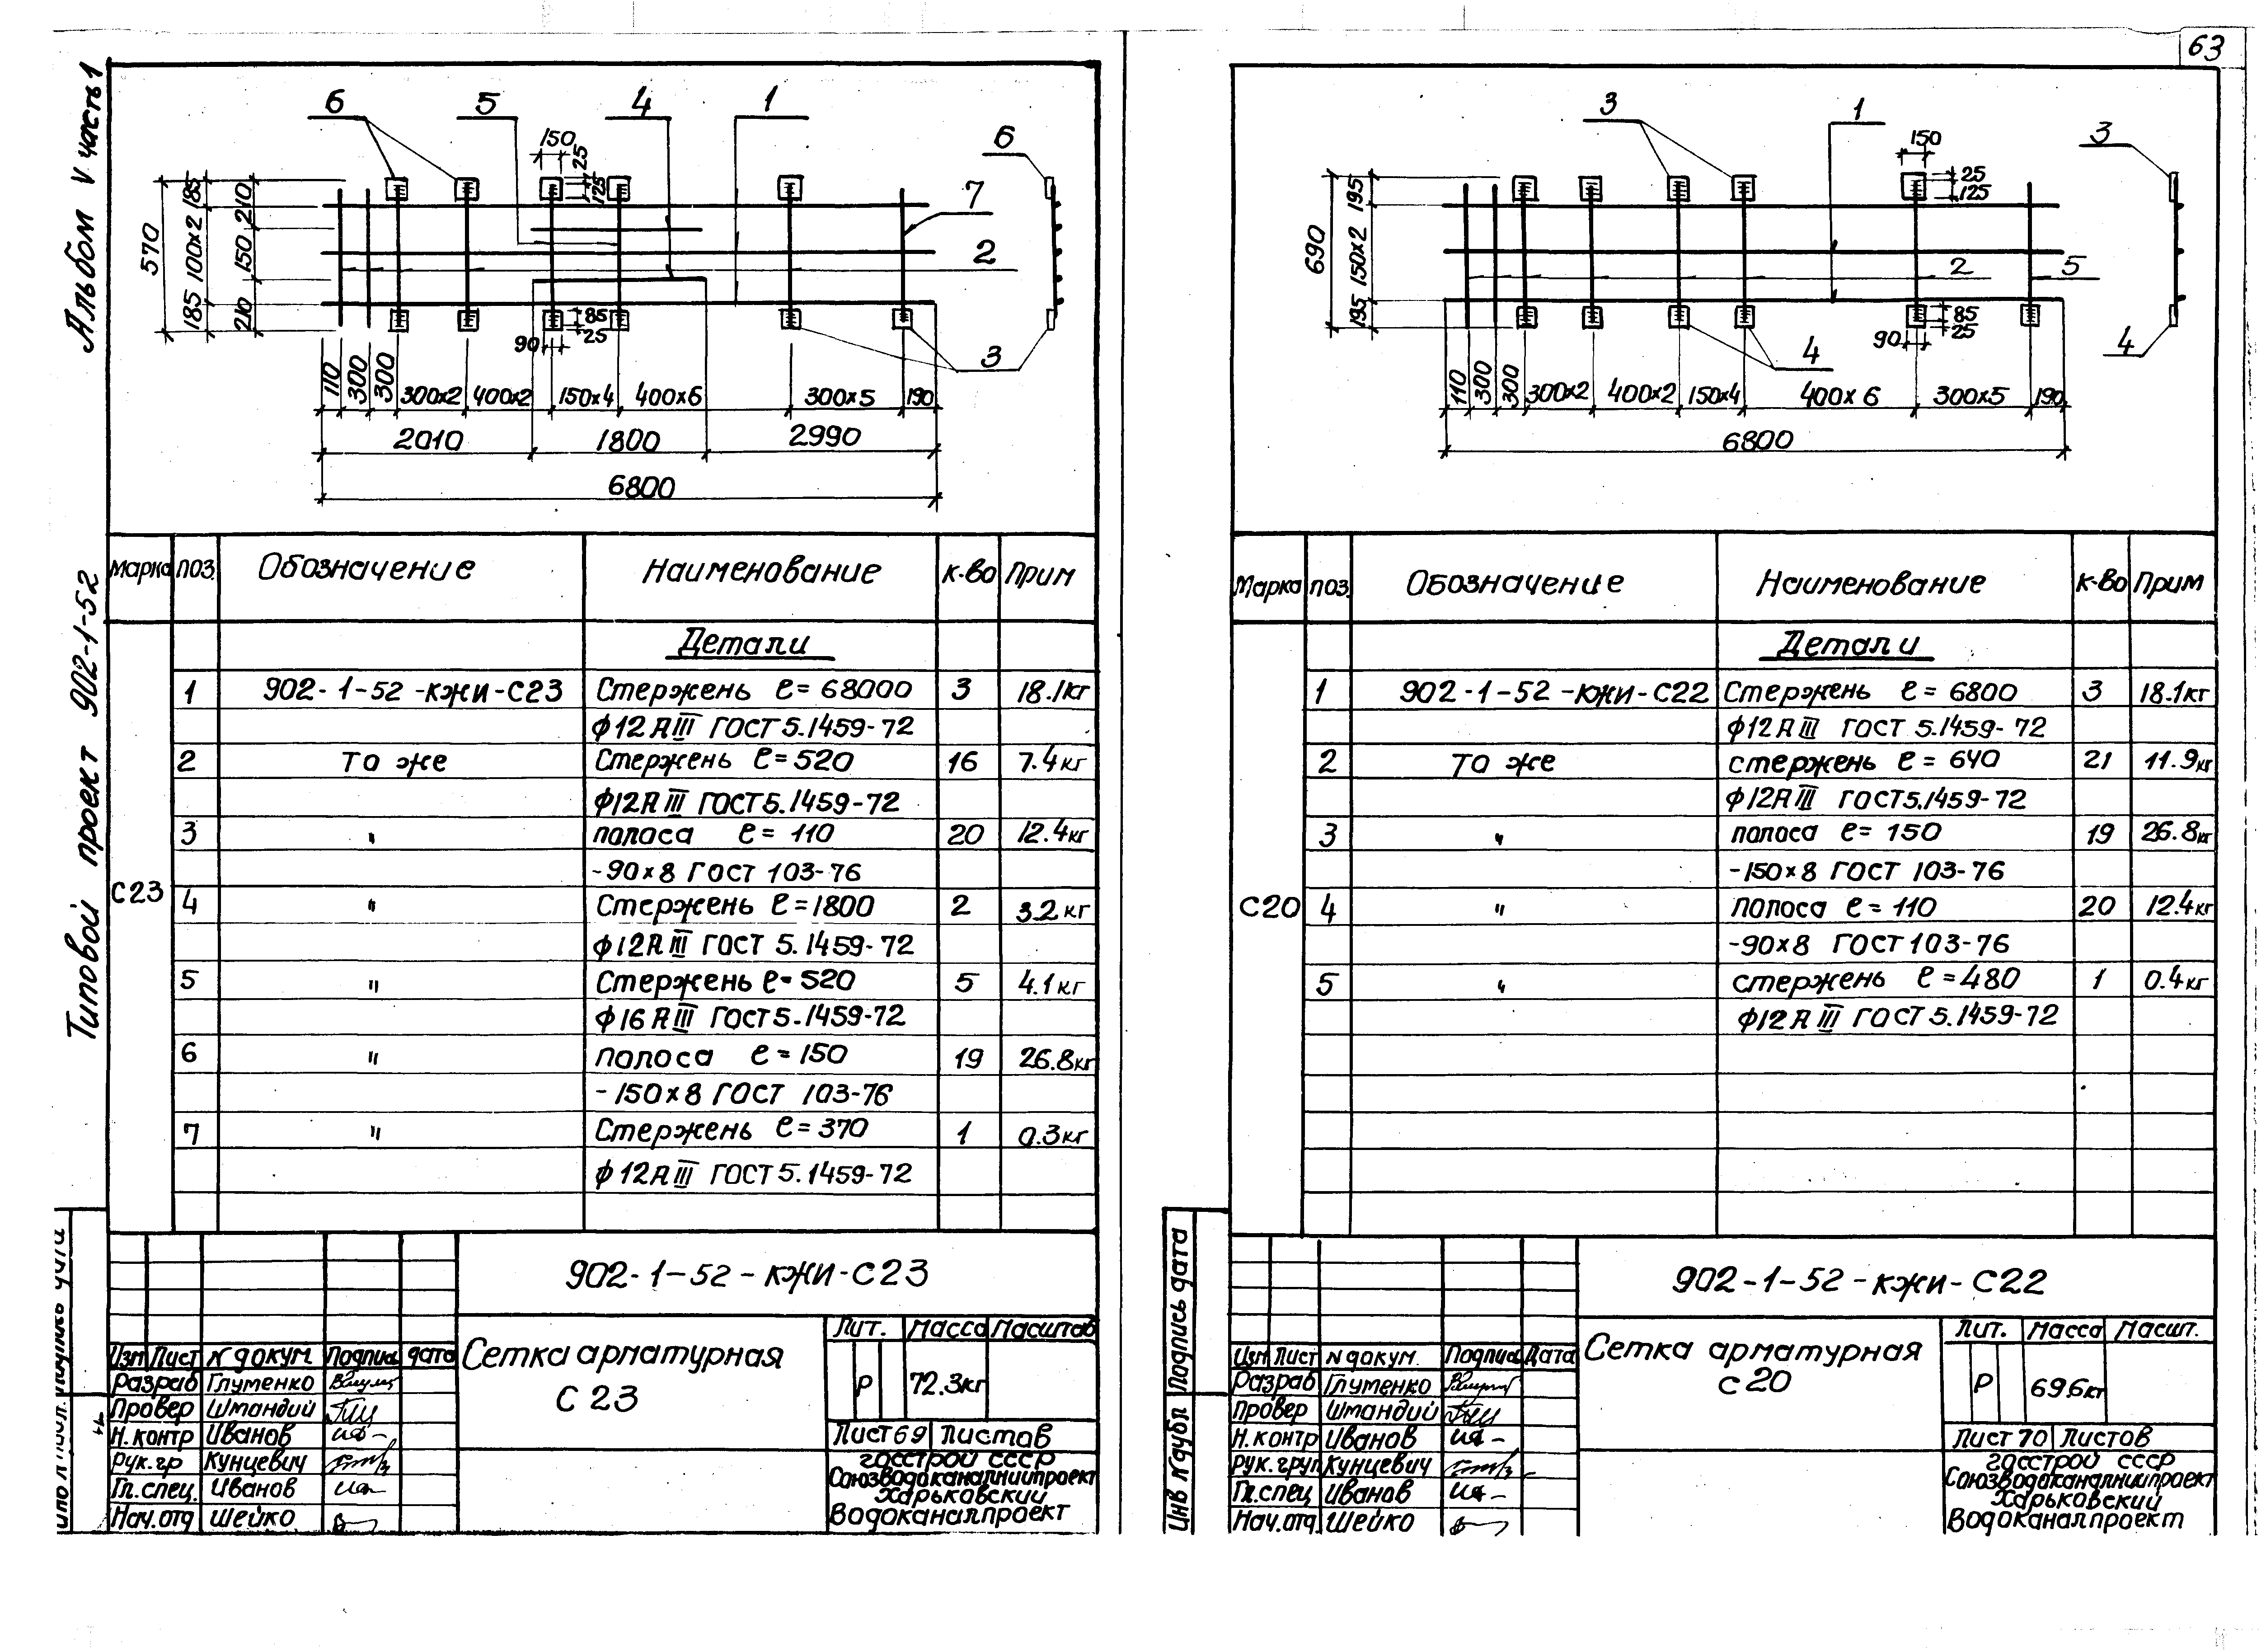 63
Альбом V часть 1
Типовой проект 902-1-52
6 5 4 1
150 25 125
6
7
2
3
570
185 100x2 185
210 150 210
90 85 25
110 300 300 300x2 400x2 150x4 400x6 300x5 190
2010 1800 2990
6800
Марка поз. Обозначение Наименование к-во Прим
Детали
1 902-1-52-кжи-С23 Стержень ℓ=68000 3 18.1кг
ф12АIII ГОСТ 5.1459-72
2 то же Стержень ℓ=520 16 7.4кг
ф12АIII ГОСТ 5.1459-72
3 " полоса ℓ=110 20 12.4кг
-90x8 ГОСТ 103-76
С23 4 " Стержень ℓ=1800 2 3.2кг
ф12АIII ГОСТ 5.1459-72
5 " Стержень ℓ=520 5 4.1кг
ф16АIII ГОСТ 5.1459-72
6 " полоса ℓ=150 19 26.8кг
-150x8 ГОСТ 103-76
7 " Стержень ℓ=370 1 0.3кг
ф12АIII ГОСТ 5.1459-72
902-1-52-кжи-С23
Сетка арматурная
С 23
Лит. Масса Масштаб
Р 72.3кг
Лист 69 Листов
госстрой ссср
Союзводоканалниипроект
Харьковский
Водоканалпроект
Изм Лист N докум. Подпись дата
Разраб Глуменко
Провер Штандий
Н.контр Иванов
Рук.гр Кунцевич
Гл.спец. Иванов
Нач.отд Шейко
3 1
150 25 125
3
690
195 150x2 195
2 5
85 25 90
4 4
110 300 300 300x2 400x2 150x4 400x6 300x5 190
6800
Марка поз. Обозначение Наименование к-во Прим
Детали
1 902-1-52-кжи-С22 Стержень ℓ=6800 3 18.1кг
ф12АIII ГОСТ 5.1459-72
2 то же стержень ℓ=640 21 11.9кг
ф12АIII ГОСТ 5.1459-72
3 " полоса ℓ=150 19 26.8кг
-150x8 ГОСТ 103-76
С20 4 " полоса ℓ=110 20 12.4кг
-90x8 ГОСТ 103-76
5 " стержень ℓ=480 1 0.4кг
ф12АIII ГОСТ 5.1459-72
902-1-52-кжи-С22
Сетка арматурная
с 20
Лит. Масса Масшт.
Р 69.6кг
Лист 70 Листов
госстрой ссср
Союзводоканалниипроект
Харьковский
Водоканалпроект
Изм Лист N докум. Подпись Дата
Разраб Глуменко
Провер Штандий
Н.контр Иванов
рук.груп. Кунцевич
Гл.спец Иванов
Нач.отд. Шейко
Инв N дубл Подпись дата